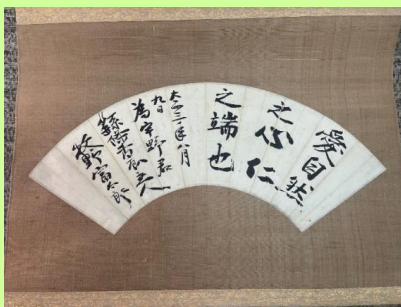 愛自然
之心仁
之端也
大正三年八月
九日
為宇野君
牧野富太郎